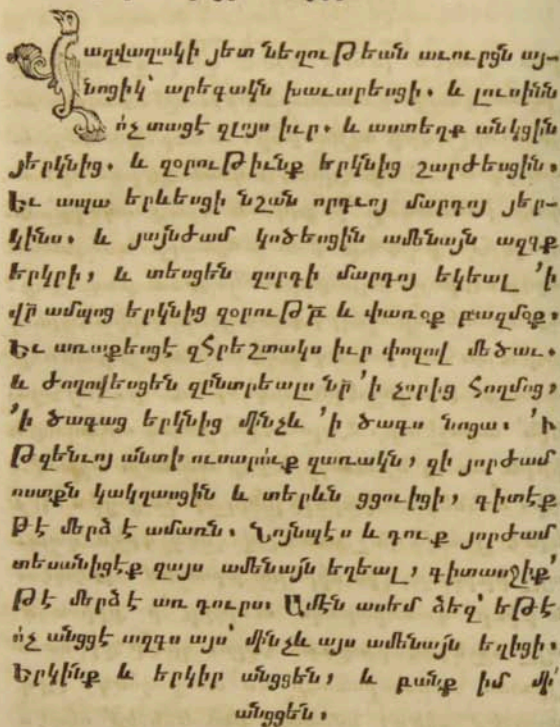 Վաղվաղակի յետ նեղութեան աւուրցն այ-
նոցիկ՝ արեգակն խաւարեսցի. և լուսինն
ոչ տացէ զլոյս իւր. և աստեղք անկցին
յերկնից. և զօրութիւնք երկնից շարժեսցին.
Եւ ապա երևեսցի նշան որդւոյ մարդոյ յեր-
կինս. և յայնժամ կոծեսցին ամենայն ազգք
երկրի, և տեսցեն զորդի մարդոյ եկեալ ՚ի
վր ամպոց երկնից զօրութբ և փառօք բազմօք.
Եւ առաքեսցէ զհրեշտակս իւր փողով մեծաւ.
և ժողովեսցեն զընտրեալս նր ՚ի չորից հողմոց,
՚ի ծագաց երկնից մինչև ՚ի ծագս նոցա. ՚Ի
թզենւոյ անտի ուսարուք զառակն, զի յորժամ
ոստքն կակղասցին և տերևն ցցուիցի, գիտէք
թէ մերձ է ամառն. Նոյնպէս և դուք յորժամ
տեսանիցէք զայս ամենայն եղեալ, գիտասջիք՝
թէ մերձ է առ դուրս. Ամէն ասեմ ձեզ՝ եթէ
ոչ անցցէ ազգս այս՝ մինչև այս ամենայն եղիցի.
Երկինք և երկիր անցցեն, և բանք իմ մի՛
անցցեն.